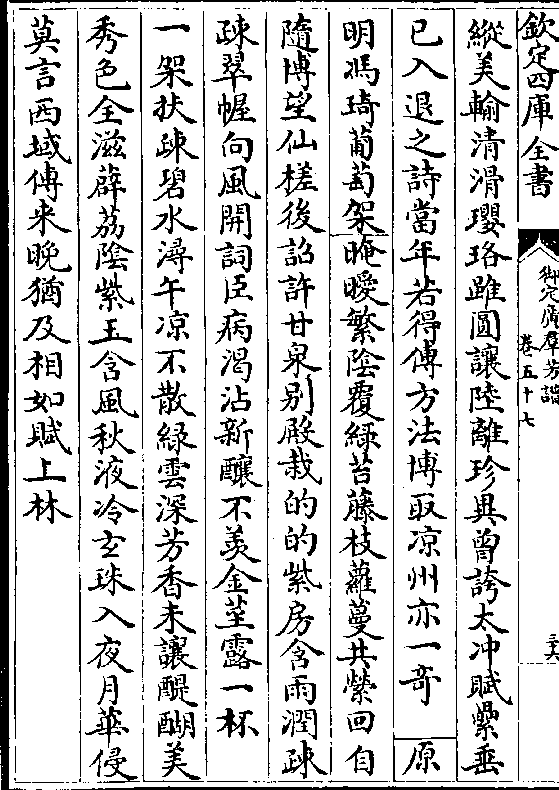 欽定四庫全書
御定廣羣芳譜
卷五十七
三六
縱美輸清滑瓔珞雖圓讓陸離珍異曾誇太冲賦纍垂
已入退之詩當年若得傅方法博取凉州亦一竒 原
明馮琦葡萄架晻曖繁陰覆綠苔藤枝蘿蔓共縈回自
隨博望仙槎後詔許甘泉别殿栽的的紫房含雨潤疎
疎翠幄向風開詞臣病渴沾新釀不羡金莖露一杯
一架扶疎碧水潯午凉不散綠雲深芳香未讓醍醐美
秀色全滋薜荔陰紫玉含風秋液冷玄珠入夜月華侵
莫言西域傳来晩猶及相如賦上林